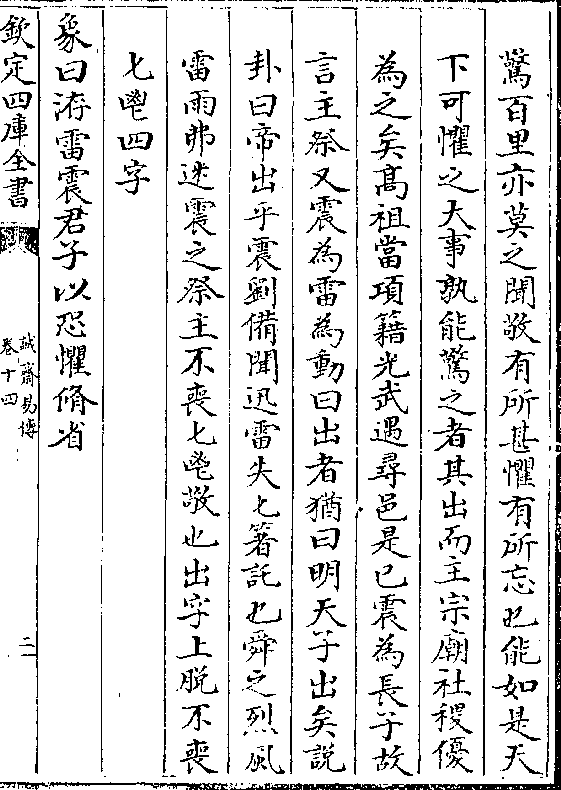 驚百里亦莫之聞敬有所甚懼有所忘也能如是天
下可懼之大事孰能驚之者其出而主宗廟社稷優
為之矣髙祖當項籍光武遇尋邑是已震為長子故
言主祭又震為雷為動曰出者猶曰明天子出矣説
卦曰帝出乎震劉備聞迅雷失匕箸託也舜之烈風
雷雨弗迷震之祭主不喪匕鬯敬也出字上脱不喪
匕鬯四字
象曰洊雷震君子以恐懼脩省
欽定四庫全書
誠齋易傳
卷十四
二